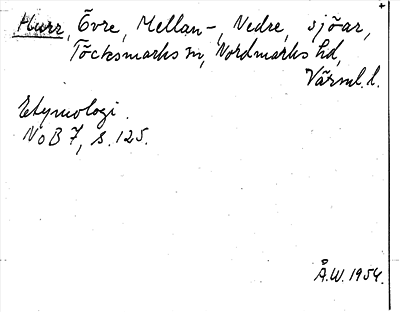 Hurr, Övre, Mellan-, Nedre, sjöar,
Töcksmarks sn, Nordmarks hd,
Värml. l.
Etymologi.
NoB 7, s. 125.
Å.W. 1954.